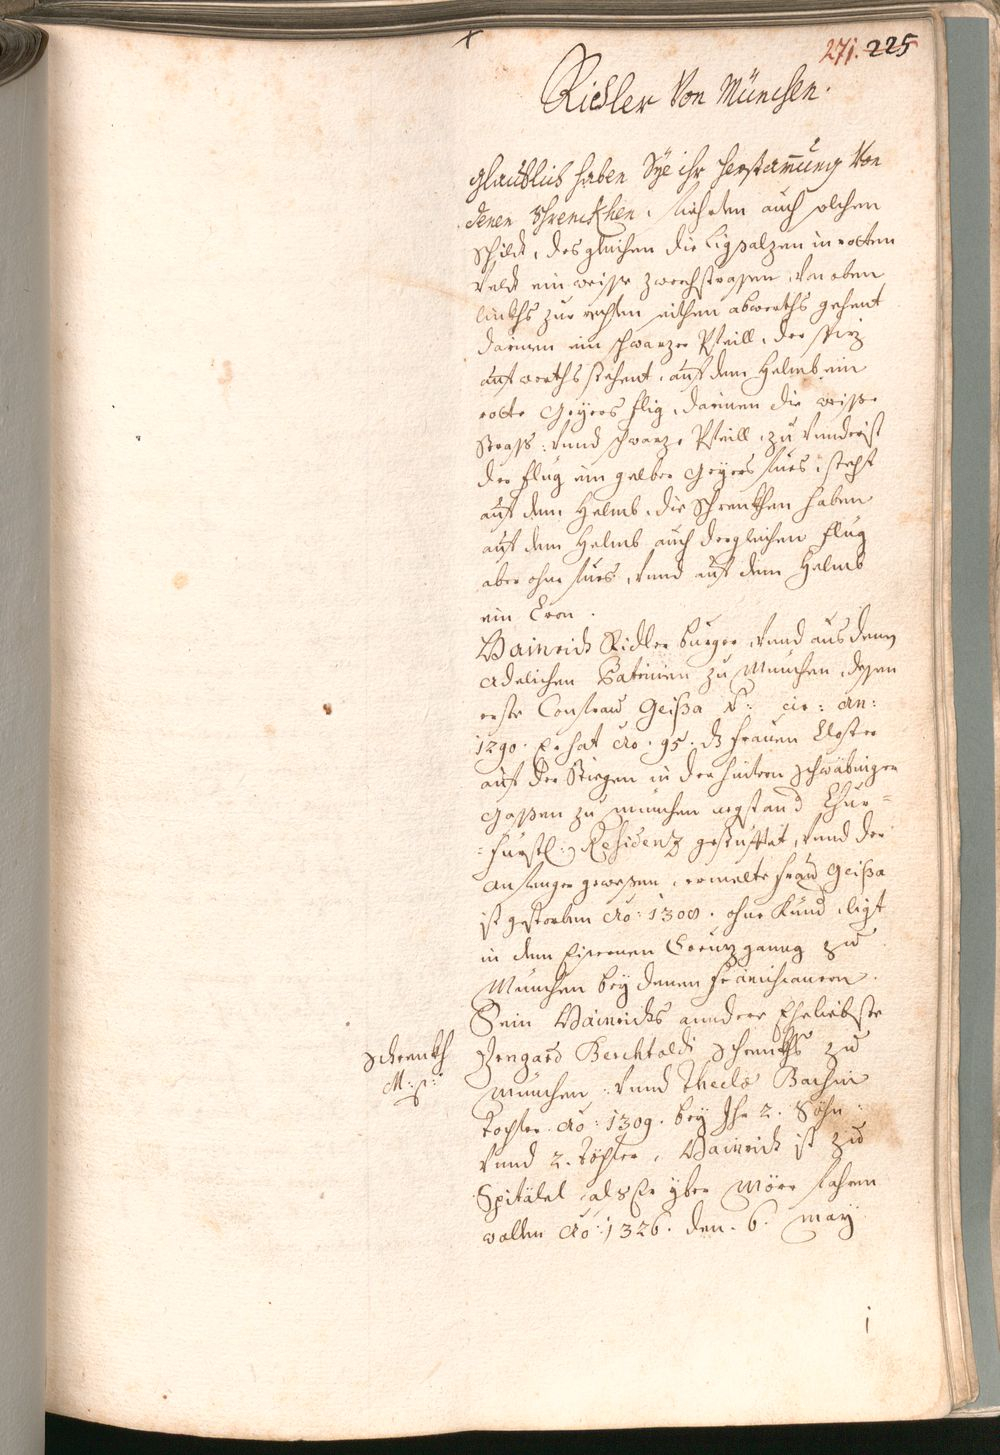 271. 225
Ridler Von München.
glaublich haben Sye ihr herstamung Von
denen Schrenckhen, fiehrten auch solchen
Schildt, desgleichen die Ligsalzen in rotten
Veldt ein weisse zwerchstrassen, von oben
linckhs zur rechten seithen abwerths gehent
darinen ein schwarzer Pfeill, der spiz
aufwerths stehent, auf dem Helmb ein
rotte Geyers flig, darinen die weisse
Strass, vnnd schwarze Pfeill, zu vnderist
der flug ein gelber Geyers fues, steht
auf dem Helmb, die Schrenkhen haben
auf dem Helmb auch dergleichen flug
aber ohne fues, vnnd auf dem Helmb
ein Cron.
Hainrich Ridler burger, vnnd aus denen
Adelichen Patricien zu München, dessen
erste Consfraw Geißa N: cir: an:
1290. Er hat Ao. 95. dz frauen Closter
auf der Stiegen in der hintern schwäbinger
Gassen zu münchen negst and Chur=
=fürstl: Residenz gestüfftet, vnnd der
anfenger gewessen, ermelte frau Geißa
ist gestorben Ao: 1308. ohne Kind, ligt
in dem Creuzganng zu
München bey denen Franciscanern.
Sein Hainrichs anndere Eheliebste
Irngard Berchtoldi Schrenkhs zu
Schrenkh
M: p:
München, vnnd Thecla Barthin
tochter. Ao: 1309. bey Ihr 2. Söhn
vnnd 2. töchter, Hainrich ist zu
Spitälel, als Er yber Mörr fahren
wollen Ao: 1326. den. 6. may
i